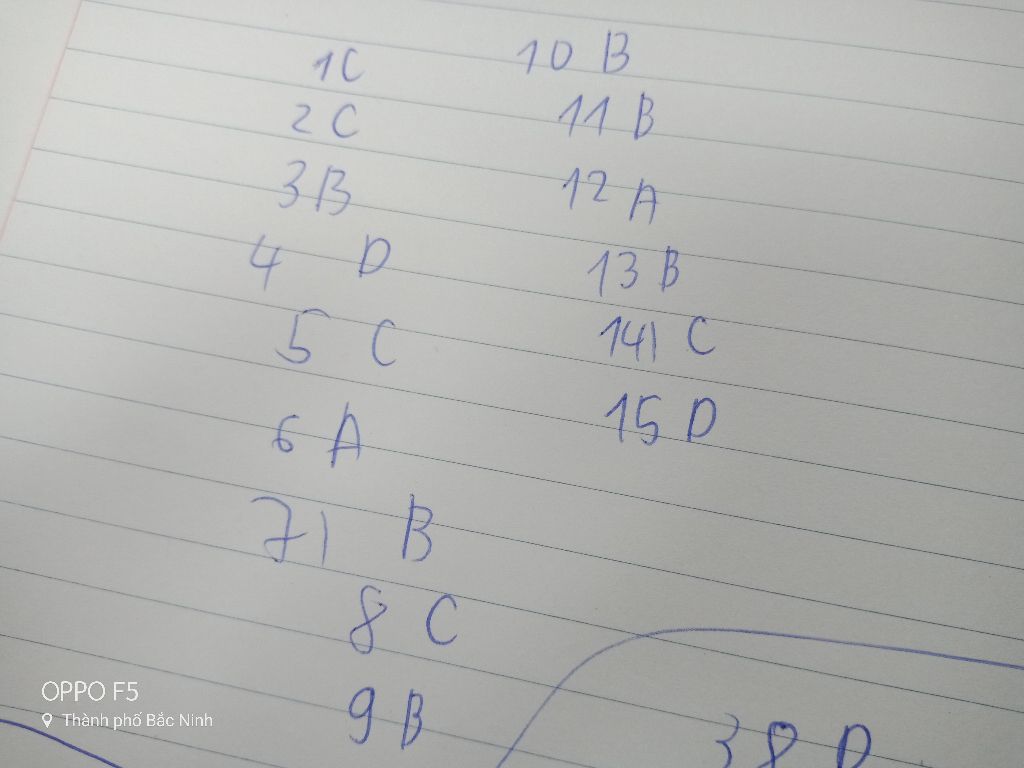 1C
2 C
3 B
4 D
5 C
6 A
7) B
8 C
9 B
10 B
11 B
12 A
13 B
14) C
15 D
38 D
OPPO F5
Thành phố Bắc Ninh